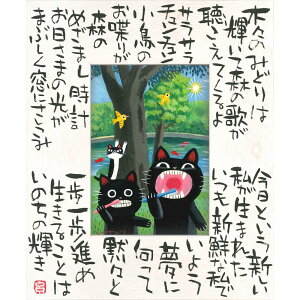 木々のみどりは
輝いて森の歌が
聴こえてくるよ
サラサラ
チュンチュン
小鳥の
お喋りが
森の
めざまし時計
お日さまの光が
まぶしく窓にさしこみ
今日という新しい
私が生まれた
いつも新鮮な私で
いよう
夢に
向って
黙々と
一歩一歩進め
生きてることは
いのちの輝き